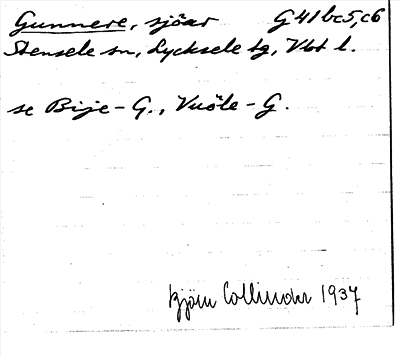 Gunnere, sjöar G41bc5,c6
Stensele sn, Lycksele tg, Vbt l.
se Bije-G., Vuöle-G.
Björn Collinder 1937